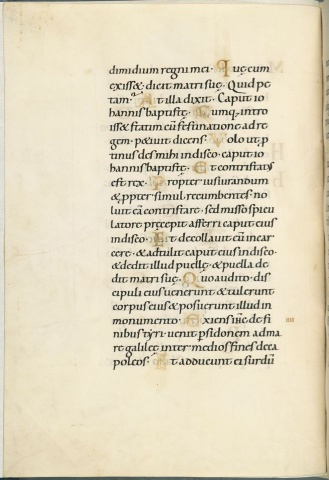 dimidium regni mei · Quę cum
exiss& · dicit matri suę · Quid pe
tam · At illa dixit · Caput io
hannis baptistę · Cumq; intro
iss& statim cū festinatione ad re
gem · p&iuit dicens · Volo ut p
tinus des mihi in disco · caput io
hannis baptistę · Et contristat'
est rex · Propter iusiurandum
& ppter simul recumbentes · no
luit eā contristare · sed misso spicu
latore pręcepit afferri caput eius
in disco · Et decollauit eū in car
cere · & adtulit caput eius in disco
& dedit illud puellę · & puella de
dit matri suę · Quo audito · dis
cipuli eius uenerunt & tulerunt
corpus eius & posuerunt illud in
monumento · Exiens iħc de fi
nibus tyri · uenit p sidonem ad ma
re galileę inter medios fines deca
poleos · Et adducunt ei surdū